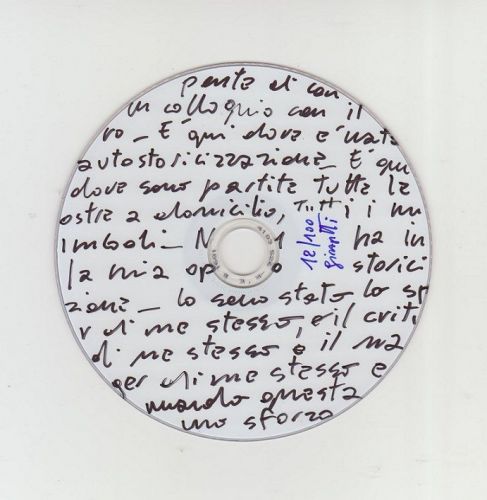 parte di con
un colloquio con il
ro_ E' qui dove è nata
autostoricizzazione_ E' qui
dove sono partite tutte le
ostre a domicilio, Tutti i mi
imboli_ N ha in
la mia op storici
zione_ Io sono stato lo st
r di me stesso, e il criti
di me stesso e il ma
ger di me stesso e
mando questa
mo sforzo
12/100